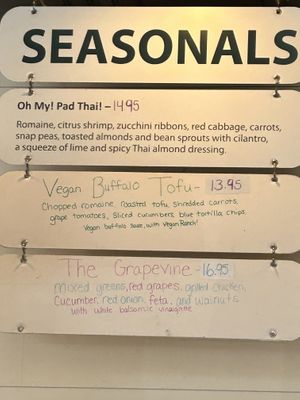 SEASONALS
Oh My! Pad Thai! – 14.95
Romaine, citrus shrimp, zucchini ribbons, red cabbage, carrots,
snap peas, toasted almonds and bean sprouts with cilantro,
a squeeze of lime and spicy Thai almond dressing.
Vegan Buffalo Tofu - 13.95
Chopped romaine, roasted tofu, shredded carrots,
grape tomatoes, sliced cucumbers, blue tortilla chips
Vegan buffalo sauce, with Vegan Ranch!
The Grapevine - 16.95
mixed greens, red grapes, grilled chicken,
Cucumber, red onion, feta, and walnuts
with white balsamic vinaigrette